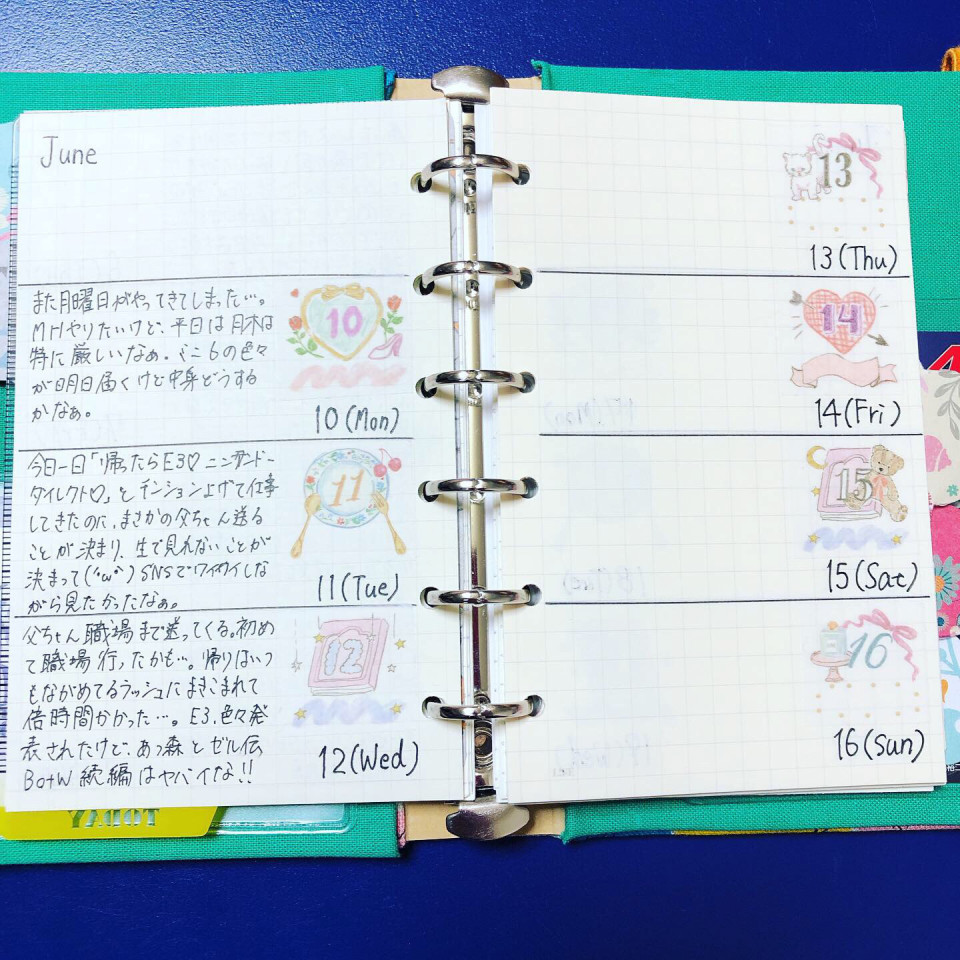 June
また月曜日がやってきてしまった…。
MHやりたいけど、平日は月木は
特に厳しいなぁ。ミニ6の色々
が明日届くけど中身どうする
かなぁ。
10
10(Mon)
今日一日「帰ったらE3♡ニンテンドー
ダイレクト♡」とテンション上げて仕事
してきたのに、まさかの父ちゃん送る
ことが決まり、生で見れないことが
決まって(´ω`)SNSでワイワイしな
がら見たかったなぁ。
11
11(Tue)
父ちゃん職場まで送ってくる。初め
て職場行ったかも…。帰りはいつ
もながめてるラッシュにまきこまれて
倍時間かかった…。E3、色々発
表されたけど、あつ森とゼル伝
BotW続編はヤバイな!!
12
12(Wed)
13
13(Thu)
14
14(Fri)
15
15(Sat)
16
16(Sun)
TODAY